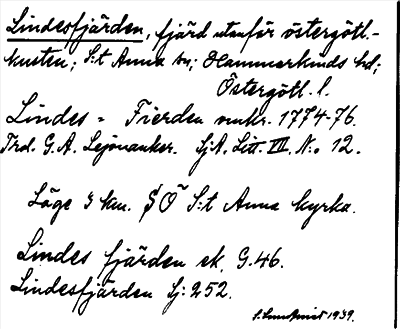 Lindesfjärden, fjärd utanför östergötl.-
kusten; S:t Anna sn; Hammarkinds hd;
Östergötl. l.
Lindes = Fierden omkr. 1774-76.
Trol. G.A. Lejonanker. SjA. Litt. VII. N:o 12.
Läge 3 km. SO S:t Anna kyrka.
Lindes fjärden ek. G.46.
Lindesfjärden Sj: 252.
1939.